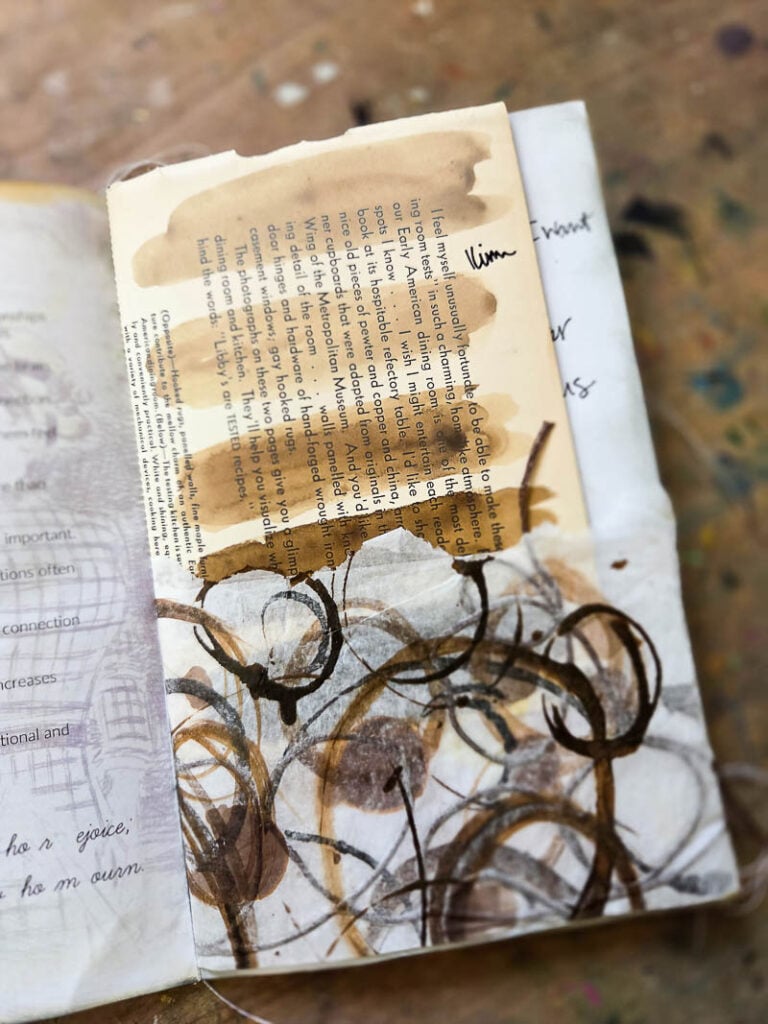 important.
tions often
connection
ncreases
tional and
ho r ejoice;
ho m ourn.
I feel myself unusually fortunate to be able to make these
ing room tests" in such a charming, homelike atmosphere.
our Early American dining room is one of the most de
spots I know . . . I wish I might entertain each read
book at its hospitable refectory table. I'd like to sh
nice old pieces of pewter and copper and china, arr
ner cupboards that were adapted from originals in th
Wing of the Metropolitan Museum. And you'd like
ing detail of the room . . . walls panelled with kn
door hinges and hardware of hand-forged wrought iron
casement windows; gay hooked rugs.
The photographs on these two pages give you a glimp
dining room and kitchen. They'll help you visualize wh
hind the words: "Libby's are TESTED recipes."
(Opposite)—Hooked rugs, panelled walls, fine maple furni
ture contribute to the mellow charm of an authentic Ear
American dining room. (Below)—The testing kitchen is
ly and conveniently practical. White and shining, eq
with a variety of mechanical devices, cooking here
Kim
I want